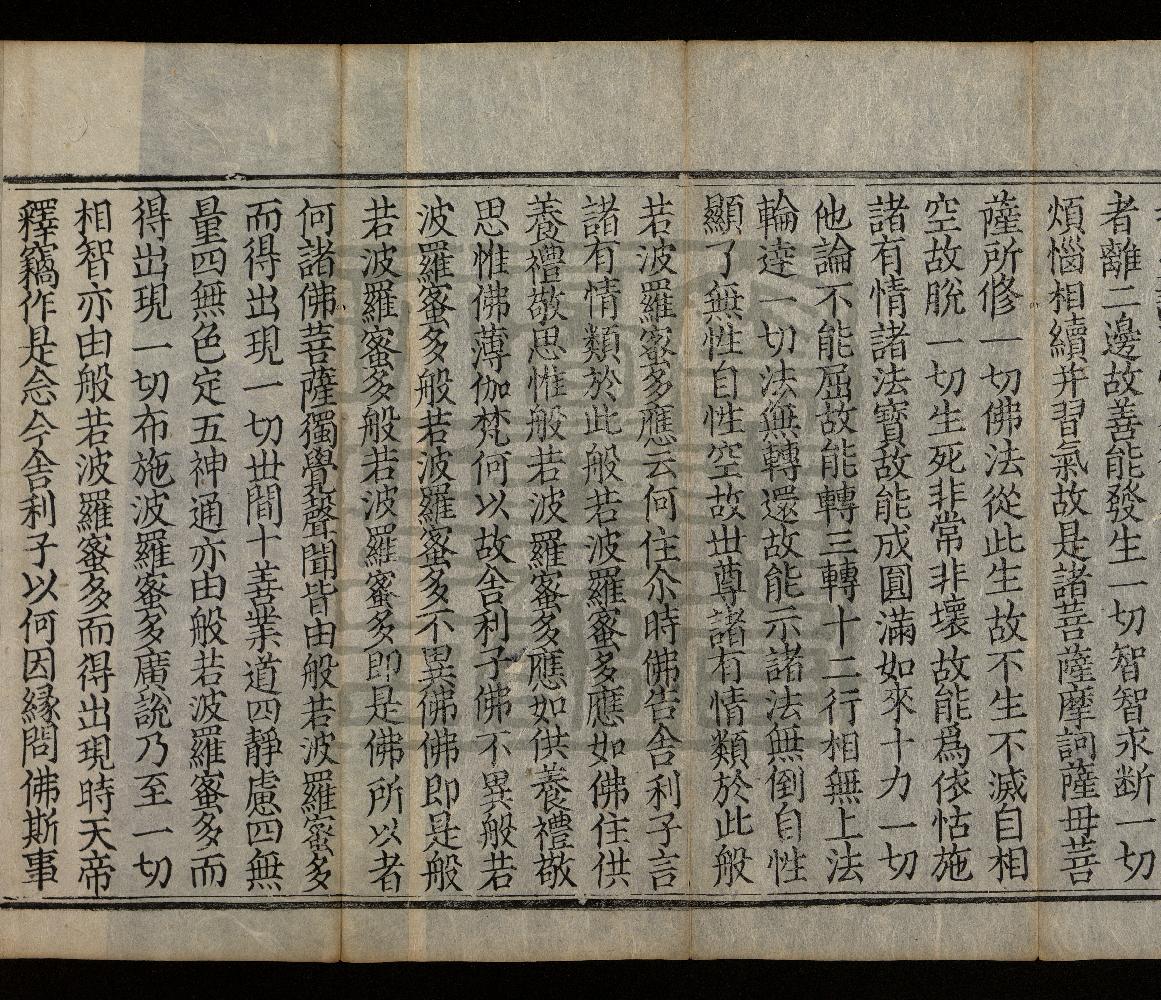 者離二邊故善能發生一切智智永断一切
煩惱相續并習氣故是諸菩薩摩訶薩母菩
薩所修一切佛法從此生故不生不滅自相
空故脫一切生死非常非壞故能爲依怙施
諸有情諸法寶故能成圓滿如來十力一切
他論不能屈故能轉三轉十二行相無上法
輪達一切法無轉還故能示諸法無倒自性
顯了無性自性空故世尊諸有情類於此般
若波羅蜜多應云何住尒時佛告舍利子言
諸有情類於此般若波羅蜜多應如佛住供
養禮敬思惟般若波羅蜜多應如供養禮敬
思惟佛薄伽梵何以故舍利子佛不異般若
波羅蜜多般若波羅蜜多不異佛佛即是般
若波羅蜜多般若波羅蜜多即是佛所以者
何諸佛菩薩獨覺聲聞皆由般若波羅蜜多
而得出現一切世間十善業道四靜慮四無
量四無色定五神通亦由般若波羅蜜多而
得出現一切布施波羅蜜多廣說乃至一切
相智亦由般若波羅蜜多而得出現時天帝
釋竊作是念今舍利子以何因緣問佛斯事